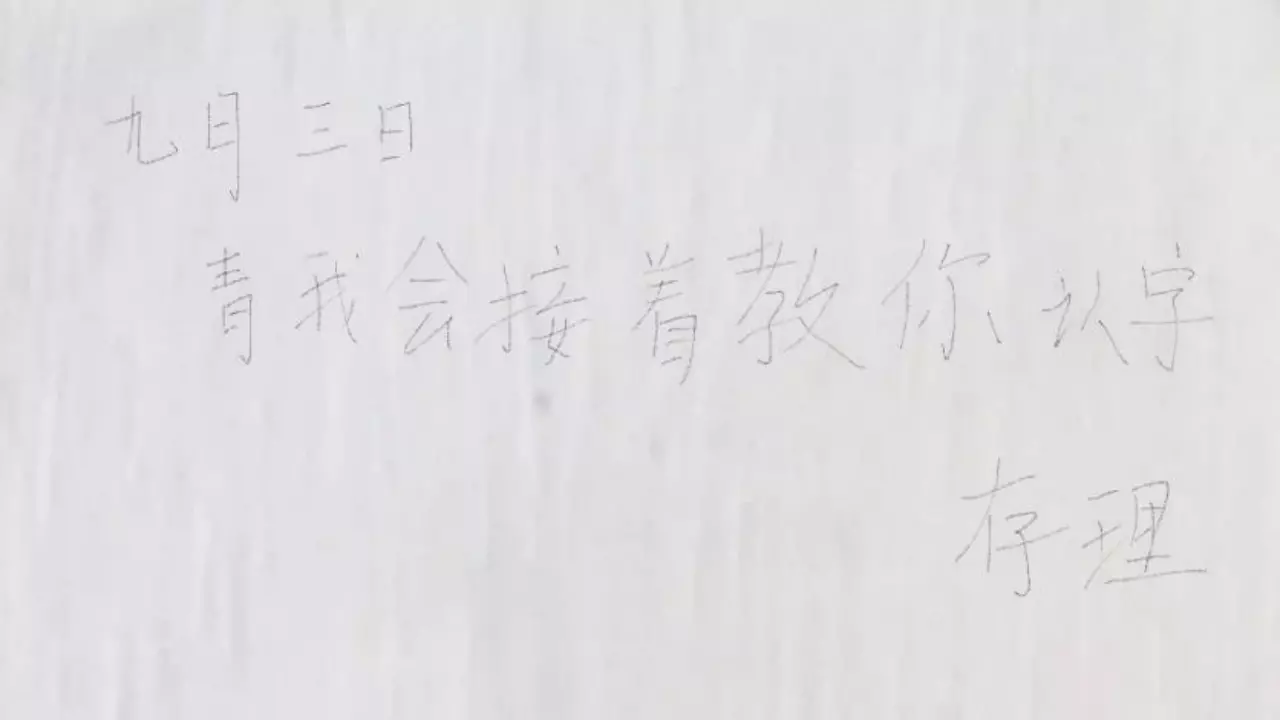 九月三日
青我会接着教你认字
存理